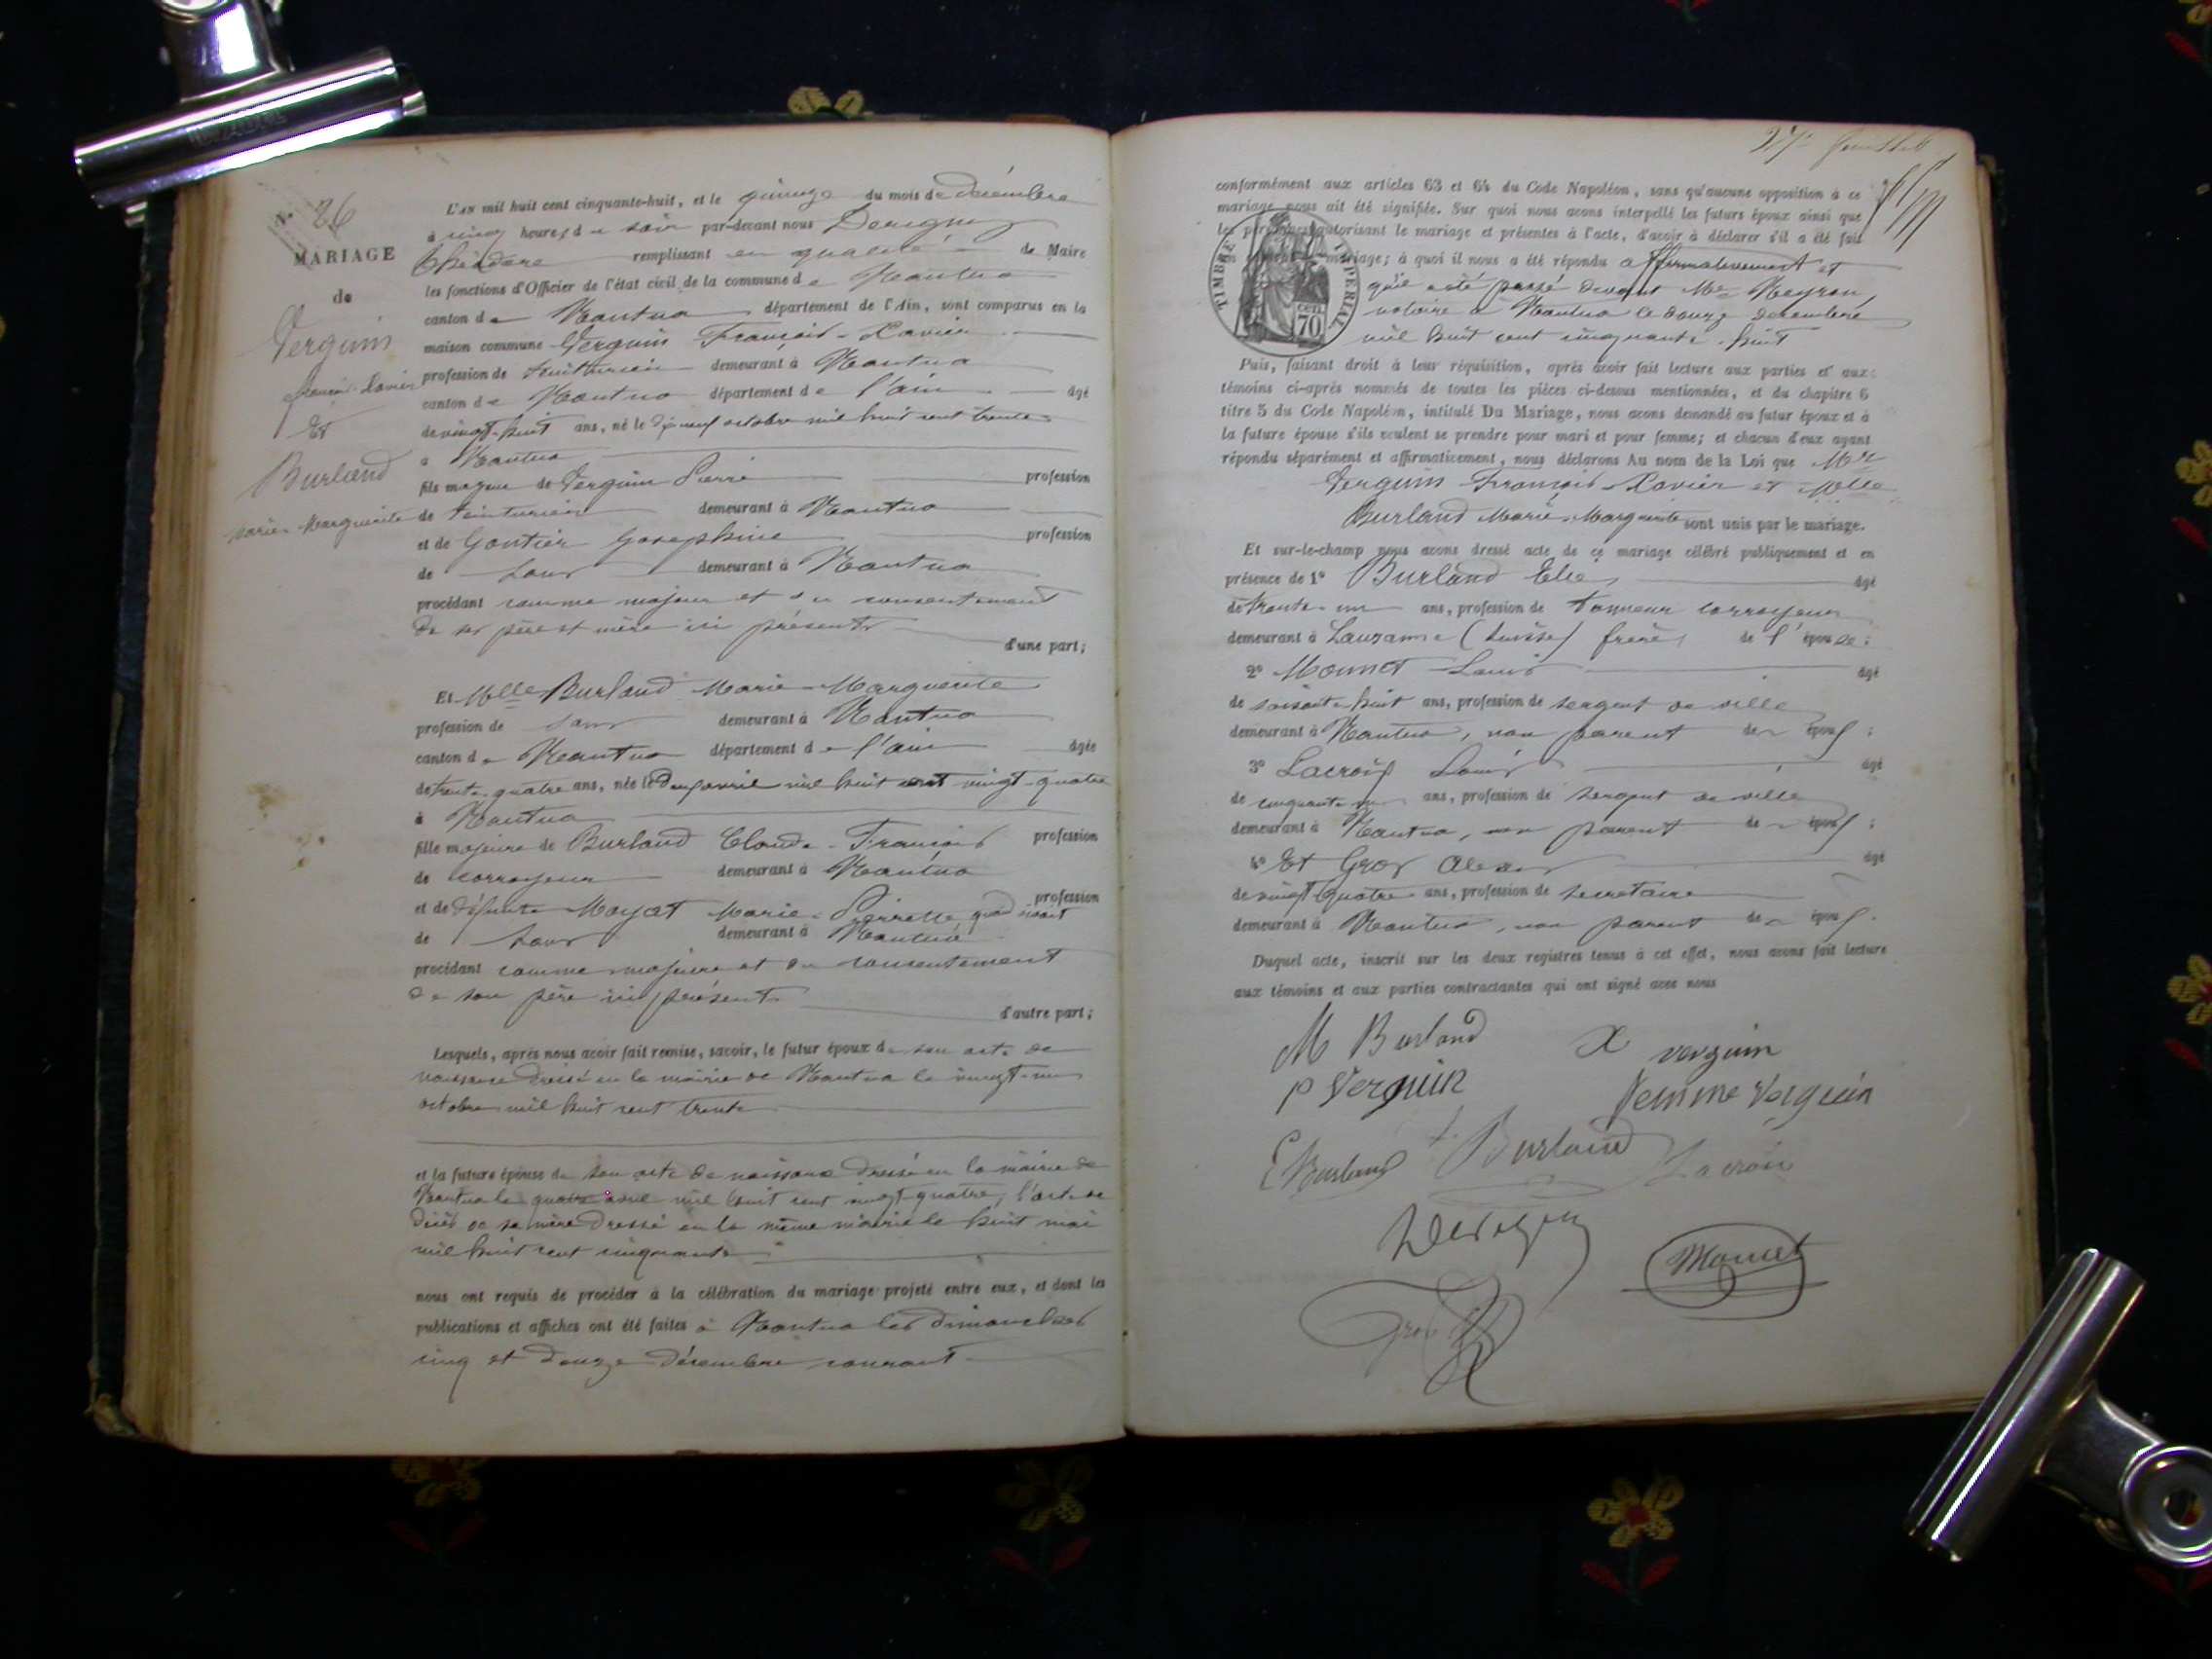 N° 26
MARIAGE
de
Verguin
François-Xavier
Et
Burland
Marie-Marguerite
L'AN mil huit cent cinquante-huit, et le quinze du mois de Décembre
à cinq heures du soir par-devant nous Derigny
Théodore remplissant en qualité de Maire
les fonctions d'Officier de l'état civil de la commune de Nantua
canton de Nantua département de l'Ain, sont comparus en la
maison commune Verguin François-Xavier
profession de teinturier demeurant à Nantua
canton de Nantua département de l'ain âgé
de vingt-huit ans, né le dix neuf octobre mil huit cent trente
à Nantua
fils majeur de Verguin Pierre profession
de teinturier demeurant à Nantua
et de Gontier Josephine profession
de sans demeurant à Nantua
procédant comme majeur et du consentement
de ses père et mère ici présents
d'une part;
Et Melle Burland Marie-Marguerite
profession de sans demeurant à Nantua
canton de Nantua département de l'ain âgée
de trente-quatre ans, née le deux avril mil huit cent vingt-quatre
à Nantua
fille majeure de Burland Claude-François profession
de corroyeur demeurant à Nantua
et de défunte Moyat Marie-Pierrette, quand vivait profession
de sans demeurant à Nantua
procédant comme majeure et du consentement
de son père ici présent
d'autre part;
Lesquels, après nous avoir fait remise, savoir, le futur époux de son acte de
naissance dressé en la mairie de Nantua le vingt-un
octobre mil huit cent trente
et la future épouse de son acte de naissance dressé en la mairie de
Nantua le quatre avril mil huit cent vingt-quatre, l'acte de
décès de sa mère dressé en la même mairie le huit mai
mil huit cent cinquante
nous ont requis de procéder à la célébration du mariage projeté entre eux, et dont les
publications et affiches ont été faites à Nantua les dimanches
cinq et douze décembre courant
27e feuillet
conformément aux articles 63 et 64 du Code Napoléon, sans qu'aucune opposition à ce
mariage nous ait été signifiée. Sur quoi nous avons interpellé les futurs époux ainsi que
les personnes autorisant le mariage et présentes à l'acte, d'avoir à déclarer s'il a été fait
mariage; à quoi il nous a été répondu affirmativement et
qu'il a été passé devant Me Neyron,
notaire à Nantua le douze décembre
mil huit cent cinquante-huit
TIMBRE IMPERIAL
CENT. 70
Puis, faisant droit à leur réquisition, après avoir fait lecture aux parties et aux
témoins ci-après nommés de toutes les pièces ci-dessus mentionnées, et du chapitre 6
titre 5 du Code Napoléon, intitulé Du Mariage, nous avons demandé au futur époux et à
la future épouse s'ils veulent se prendre pour mari et pour femme; et chacun d'eux ayant
répondu séparément et affirmativement, nous déclarons Au nom de la Loi que Mr
Verguin François-Xavier et Melle
Burland Marie-Marguerite sont unis par le mariage.
Et sur-le-champ nous avons dressé acte de ce mariage célébré publiquement et en
présence de 1° Burland Elie âgé
de trente-un ans, profession de tanneur corroyeur
demeurant à Lauzanne (Suisse) frère de l'épouse;
2° Monnet Louis âgé
de soixante-huit ans, profession de sergent de ville
demeurant à Nantua, non parent des époux;
3° Lacroix Louis âgé
de cinquante ans, profession de sergent de ville
demeurant à Nantua, non parent des époux;
4° Et Gros âgé
de vingt-quatre ans, profession de secrétaire
demeurant à Nantua, non parent des époux.
Duquel acte, inscrit sur les deux registres tenus à cet effet, nous avons fait lecture
aux témoins et aux parties contractantes qui ont signé avec nous
M Burland X verguin
P Verguin femme Verguin
E Burland Burland Lacroix
Derigny
Monnet
Gros